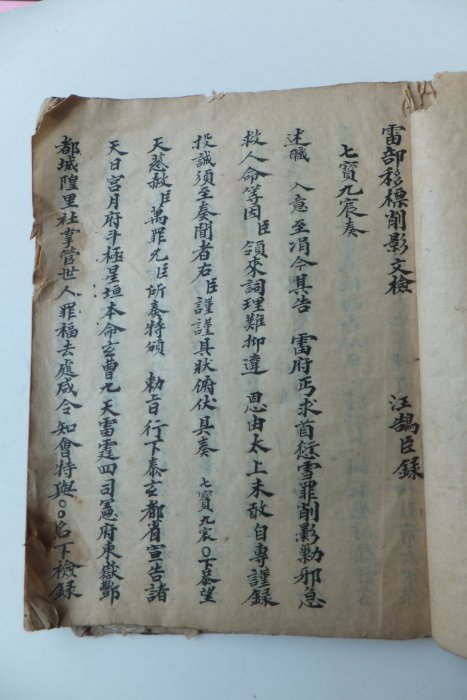 雷部移標削影文檢　汪鵠臣錄
七寶九宸奏
述職　入意至涓今具告　雷府丐求首愆雪罪削影勦邪急
救人命等因臣領來詞理難抑違　恩由太上未敢自專謹錄
投誠須至奏聞者右臣謹謹具狀俯伏具奏　七寶九宸〇下恭望
天慈赦臣萬罪允臣所奏特頒　勅旨行下泰玄都省宣告諸
天日宮月府斗極星垣本命玄曹九天雷霆四司憲府東嶽酆
都城隍里社掌管世人罪福去處咸令知會特與〇〇名下檢錄